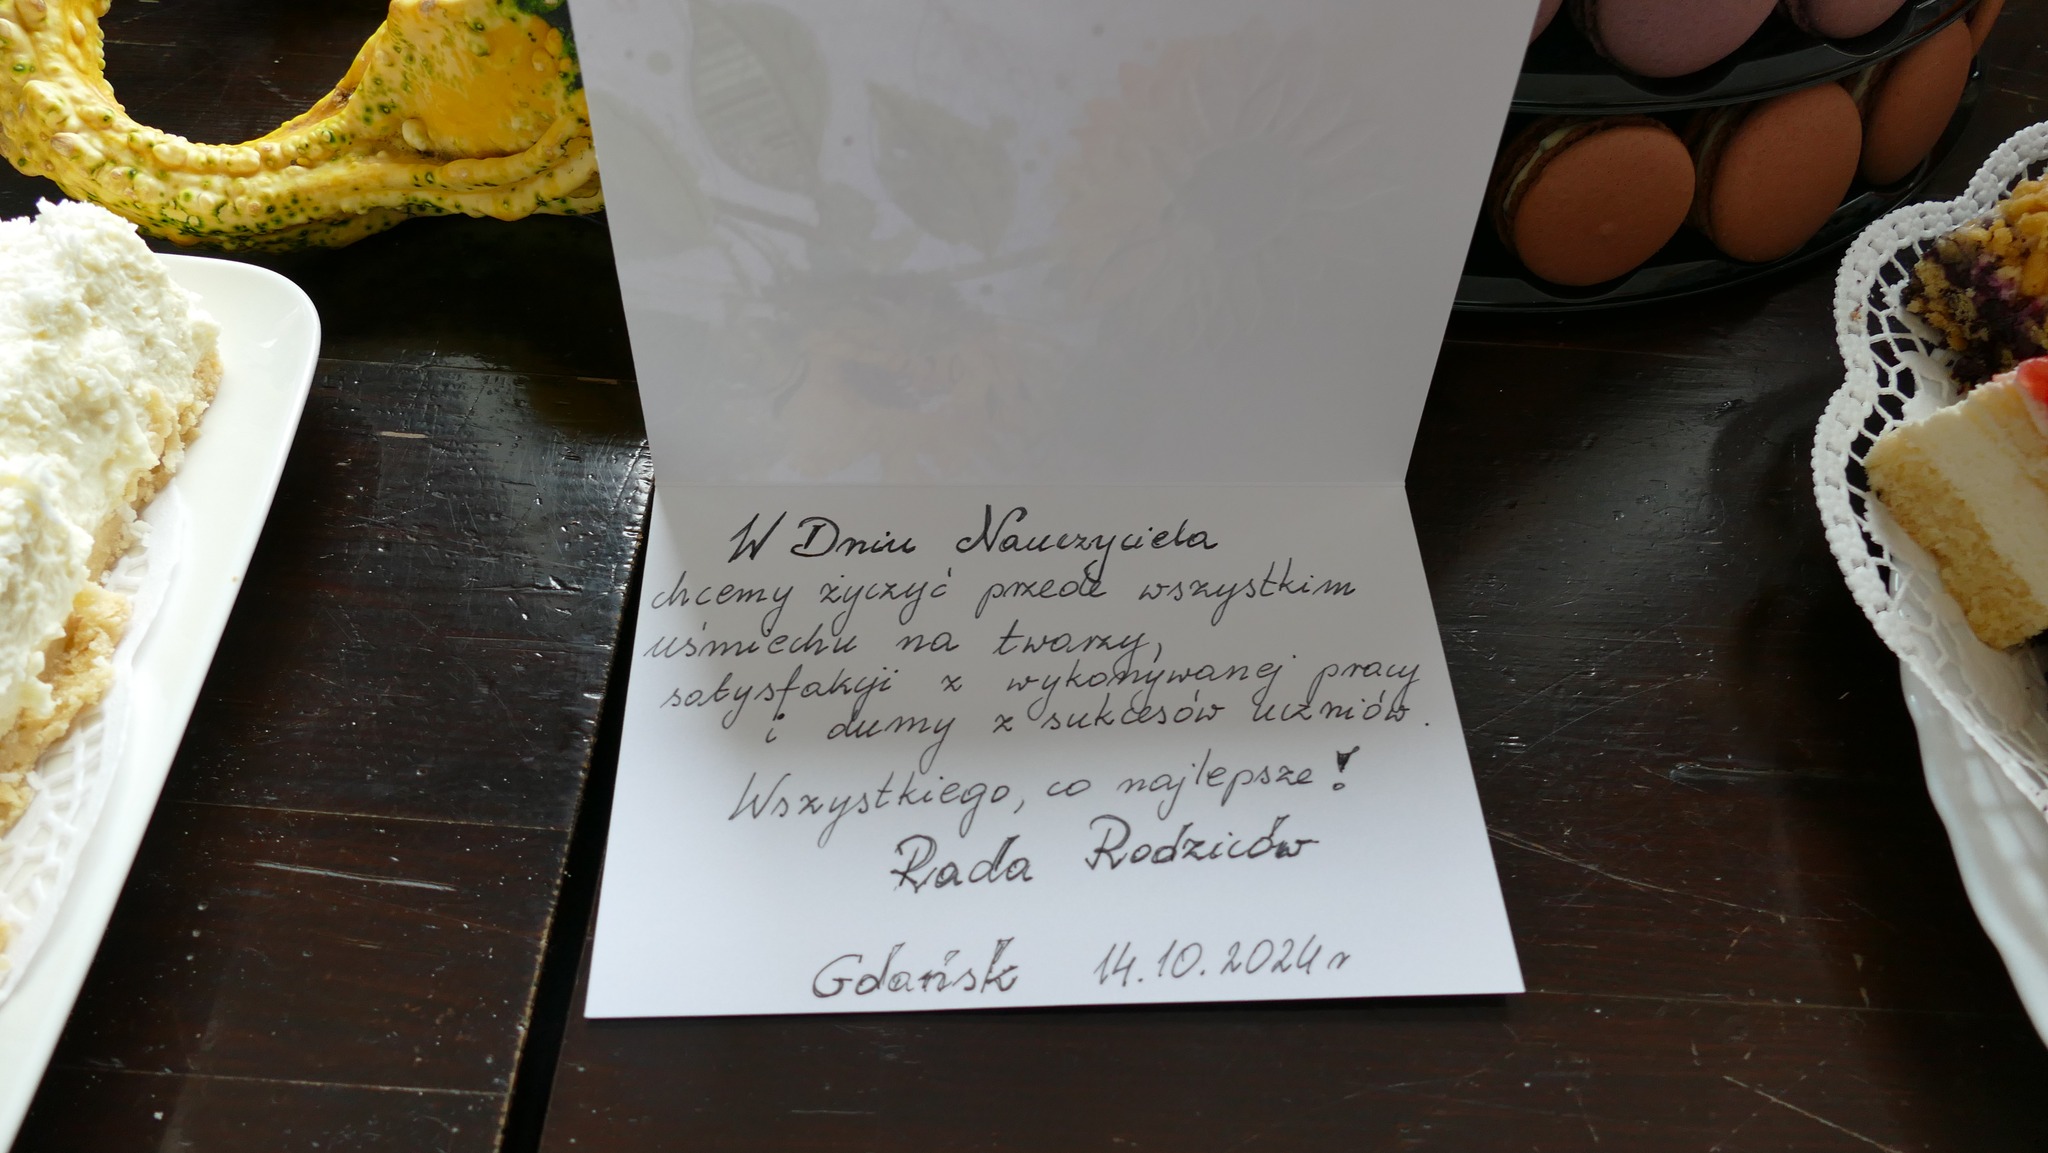 W Dniu Nauczyciela
chcemy życzyć przede wszystkim
uśmiechu na twarzy,
satysfakcji z wykonywanej pracy
i dumy z sukcesów uczniów.
Wszystkiego, co najlepsze!
Rada Rodziców
Gdańsk 14.10.2024 r